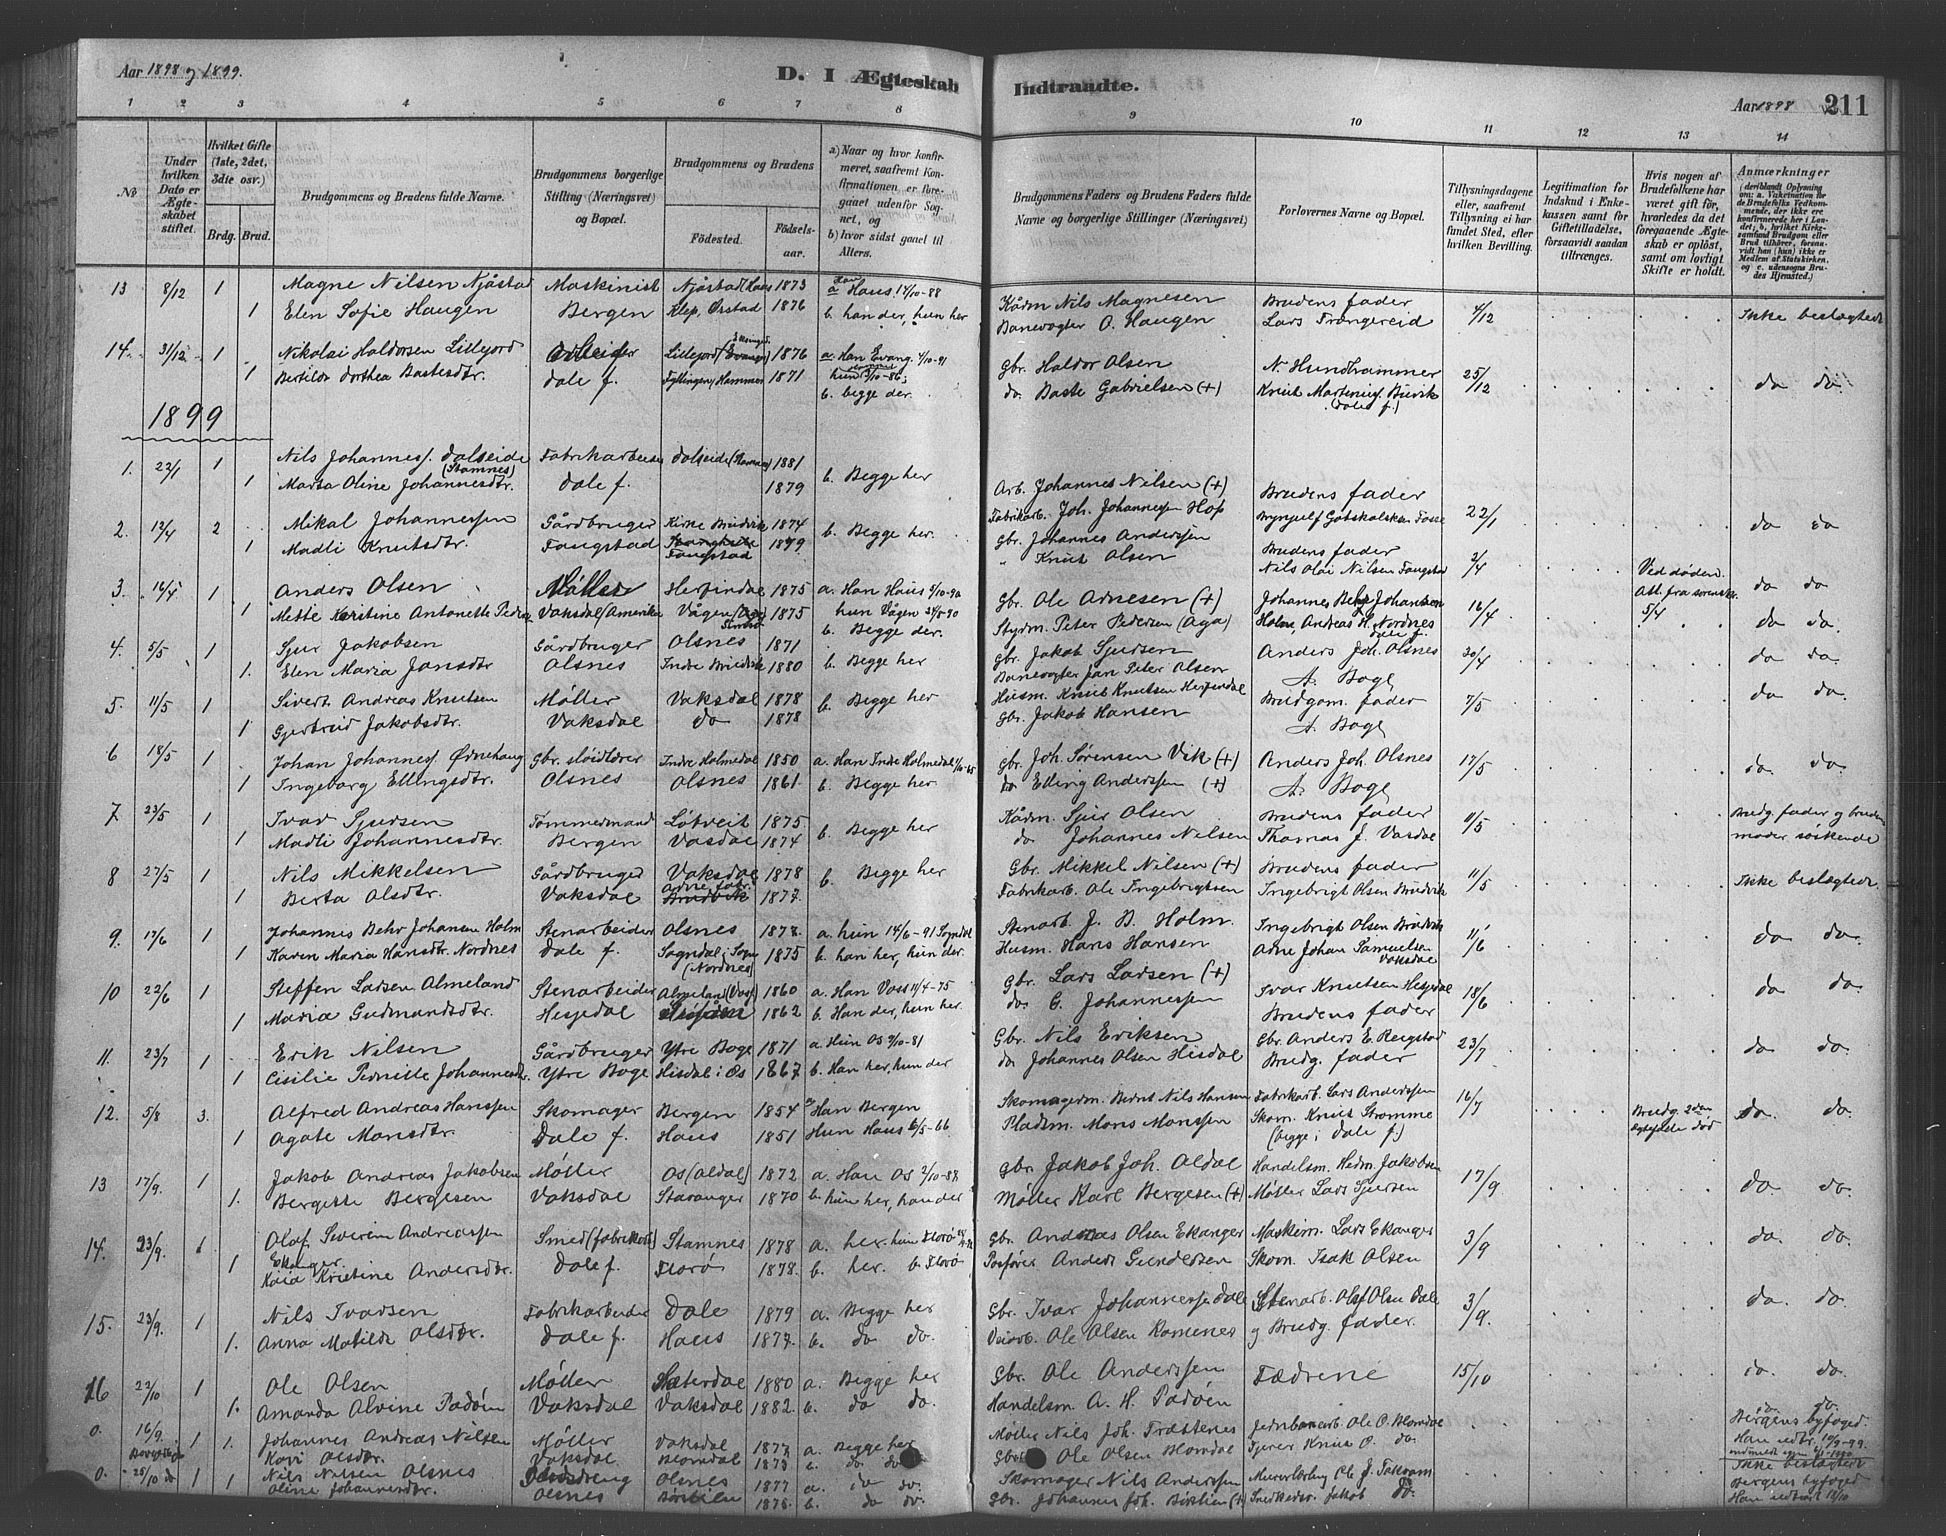 Aar 1898 og 1899.
D. I Ægteskab
Indtraadte.
Aar 1898
211
1 2 3 4 5 6 7 8
9 10 11 12 13 14
No
Under hvilken Dato er Ægteskabet stiftet.
Hvilket Gifte (1ste, 2det, 3die osv.)
Brdg. Brud.
Brudgommens og Brudens fulde Navne.
Brudgommens borgerlige Stilling (Næringsvei) og Bopæl.
Brudgommens og Brudens
Fødested.
Fødselsaar.
a) Naar og hvor konfirmeret, saafremt Konfirmationen er foregaaet udenfor Sognet, og
b) hvor sidst gaaet til Alters.
Brudgommens Faders og Brudens Faders fulde Navne og borgerlige Stillinger (Næringsvei)
Forlovernes Navne og Bopæl.
Tillysningsdagene eller, saafremt Tillysning ei har fundet Sted, efter hvilken Bevilling.
Legitimation for Indskud i Enkekassen samt for Giftetilladelse, forsaavidt saadan tiltrænges.
Hvis nogen af Brudefolkene har været gift før, hvorledes da det foregaaende Ægteskab er opløst, samt om lovligt Skifte er holdt.
Anmærkninger
13 8/12 1 Magne Nilsen Njåstad Maskinist Njåstad (Haus 1873 a Haus 14/10-88 Kårm Nils Magnesen Brudens fader 4/12 Ikke beslægtede
1 Elen Sofie Haugen Bergen Klep, Ørstad 1876 b. han der, hun her Banevogter O. Haugen Lars Trængereid
14. 31/12 1 Nikolai Haldorsen Lillejord Arbeider Lillejord (Evanger) 1876 a. Han Evang. 4/10-91 Gbr. Haldor Olsen N Hundhammer 25/12 do do
1 Bertilde Dorthea Bastesdtr. Dale f. Fyllingen, Hammer 1871 b. begge der. do. Baste Gabrielsen (+) Knut Martinus. Buvik (Dale f.)
1899
1. 22/1 1 Nils Johanness. Dalseide (Stamnes) Fabrikarbeider Dalseide (Hammer) 1881 b. Begge her Arb. Johannes Nilsen (+) Brudens fader 22/1 do do
1 Marta Oline Johannesdtr. Dale f. 1879 Fabrikarb. Joh. Johannessen Hop Brynjulf Gotskalksen Fosse
2. 12/4 2 Mikal Johannessen Gårdbruger Kirke Bruvik 1874 b. Begge her. Gbr. Johannes Anderssen Brudens fader 2/4 Ved døden. Att. fra sorenskr. 5/4 do do
1 Madli Knutsdtr. Fougstad Fougstad 1879 " Knut Olsen Nils Olai Nilsen Fougstad
3. 16/4 1 Anders Olsen Møller Herfindal 1875 a. Han Haus 5/10-90 Gbr. Ole Arnesen (+) Johannes Behr Johansen 16/4 do do.
1 Mette Kerstine Antonette Peders Vaksdal (Amerika Vågen (Aga 1875 hun Vågen 31/8-90 b. Begge der. Styrm. Peter Pedersen (Aga) Holm, Andreas H. Nordnes Dale f.
4. 5/5 1 Sjur Jakobsen Gårdbruger Olsnes 1871 b. Begge her Gbr. Jakob Sjursen Anders Joh. Olsnes 30/4 do do.
1. Elen Maria Jansdtr Olsnes Indre Bruvik 1880 Banevogter Jan Peter Olsen A. Boge
5. 11/5 1 Sivert Andreas Knutsen Møller Vaksdal 1878 b. Begge her Husm. Knut Knutsen Herfindal Brudgom. fader 7/5 do do.
1 Gjertrud Jakobsdtr. Vaksdal do 1878 Gbr. Jakob Hansen A. Boge
6 18/5 1 Johan Johanness. Ødnehaug Gbr. sløidlærer Indre Holmedal 1850 a. Han Indre Holmedal 1/10-65 Gbr. Joh. Sørensen Vik (+) Anders Joh. Olsnes 17/5 do. do.
1 Ingeborg Ellingsdtr. Olsnes Olsnes 1861. b. Begge her do Elling Anderssen (+) A. Boge
7 23/5 1 Ivar Sjursen Tømmermand Løtveit 1875 b. Begge her Kårm. Sjur Olsen Brudens fader 11/5 Brudg. fader og brudens moder søskende
1 Madli Johannesdtr. Bergen Vasdal 1874 do Johannes Nilsen Thomas J. Vasdal
8 27/5 1 Nils Mikkelsen Gårdbruger Vaksdal 1878 b. Begge her Gbr. Mikkel Nilsen (+) Brudens fader 11/5 Ikke beslægtede.
1 Berta Olsdtr. Vaksdal Bruvik 1877. Fabrikarb. Ole Ingebrigtsen Ingebrigt Olsen Bruvik
9. 17/6 1 Johannes Behr Johansen Holm Stenarbeider Olsnes 1877. a. hun 14/6-91 Sogndal Stenarb J. B. Holm. Ingebrigt Olsen Bruvik 11/6 do do.
1 Karen Maria Hansdtr. Nordnes Dale f. Sogndal i Sogn (Nordnes) 1875 b. han her, hun der. Husm. Hans Hansen Arne Johan Samuelsen Vaksdal
10 22/6 1 Steffen Larsen Almeland Stenarbeider Almeland (Voss) 1860 a. Han Voss 11/4-75 Gbr. Lars Larsen (+) Ivar Knutsen Hesjedal 18/6 do do.
1 Maria Gudmundsdtr. Hesjedal 1862 b. Han der, hun her. do. G. Johannessen Brudens fader
11. 23/7 1 Erik Nilsen Gårdbruger Ytre Boge 1871 a. Hun Os 9/10-81 Gbr. Nils Eriksen Gbr. Anders E. Reigstad 23/7 do do.
1 Cisilie Pernille Johannesdtr. Ytre Boge Hisdal i Os 1867 b. Han her, hun der do Johannes Olsen Hisdal Brudg. fader
12. 5/8 3. Alfred Andreas Hanssen Skomager Bergen 1854 a Han Bergen Skomagerm. Bernt Nils Hansen Fabrikarb. Lars Anderssen 16/7 Brudg. 2den ægtefælle død do. do.
1 Agate Monsdtr. Dale f. Haus 1851 Hun Haus 6/5-66 Pladsm. Mons Monssen Skom. Knut Strømme (begge i Dale f.)
13 17/9. 1 Jakob Andreas Jakobsen Møller Os (Øldal) 1872 a. Han Os 2/10-87 Gbr. Jakob Joh. Øldal Handelsm. Hedm. Jakobsen 17/9 do. do.
1. Bergitte Bergesen Vaksdal Stavanger 1870 b. hun her, han der Møller Karl Bergesen (+) Møller Lars Sjursen
14. 23/9. 1 Olaf Severin Andreassen Ekanger. Smed (fabrikarb) Stamnes 1878 a. her. hun Florø Gbr. Andreas Olsen Ekanger Maskinm. Lars Ekanger 3/9 do. do.
1 Kaia Kristine Andersdtr. Dale f. Florø 1878. b. her. b. Florø Postfører Anders Gundersen Skom. Isak Olsen
15. 23/9. 1 Nils Ivarsen Fabrikarbeider Dale 1879 a. Begge her Gbr. Ivar Johannesse Dale Stenarb. Olsf Olsen Dale 3/9. do. do.
1. Anna Matilde Olsdtr. Dale f. Haus 1877. b. do do. Veiarb. Ole Olsen Romenes og Brudg. fader.
16 22/10 1 Ole Olsen Møller Sæterdal 1880 a. Begge her Gbr. Ole Anderssen Fædrene 15/10 do do.
1. Amanda Alvine Padøen Vaksdal Vaksdal 1882. b. do do. Handelsm A. H. Padøen
0. 16/9. 1 1. Johannes Andreas Nilsen Møller Vaksdal 1877 a. Begge her Møller Nils Joh. Trættenes Jernbanearb Ole O. Blomdal Bergens byfoged. Han udbr. 10/9-99.
Kari Olsdtr. Vaksdal. Blomdal 1873 b. do do. Gbr. Ole Olsen Blomdal Fyrer Knut O. do. Ikke beslægtede
0. 25/10 do 1 1 Nils Nilsen Olsnes Olsnes 1877 a. do do. Skomager Nils Anderssen Murerlærling Ole J. Takvam Bergens byfoged
Oline Johannesdtr. Olsnes 1876. b. do do. Gbr. Johannes Joh. (+) Snedkersv. Jakob do.